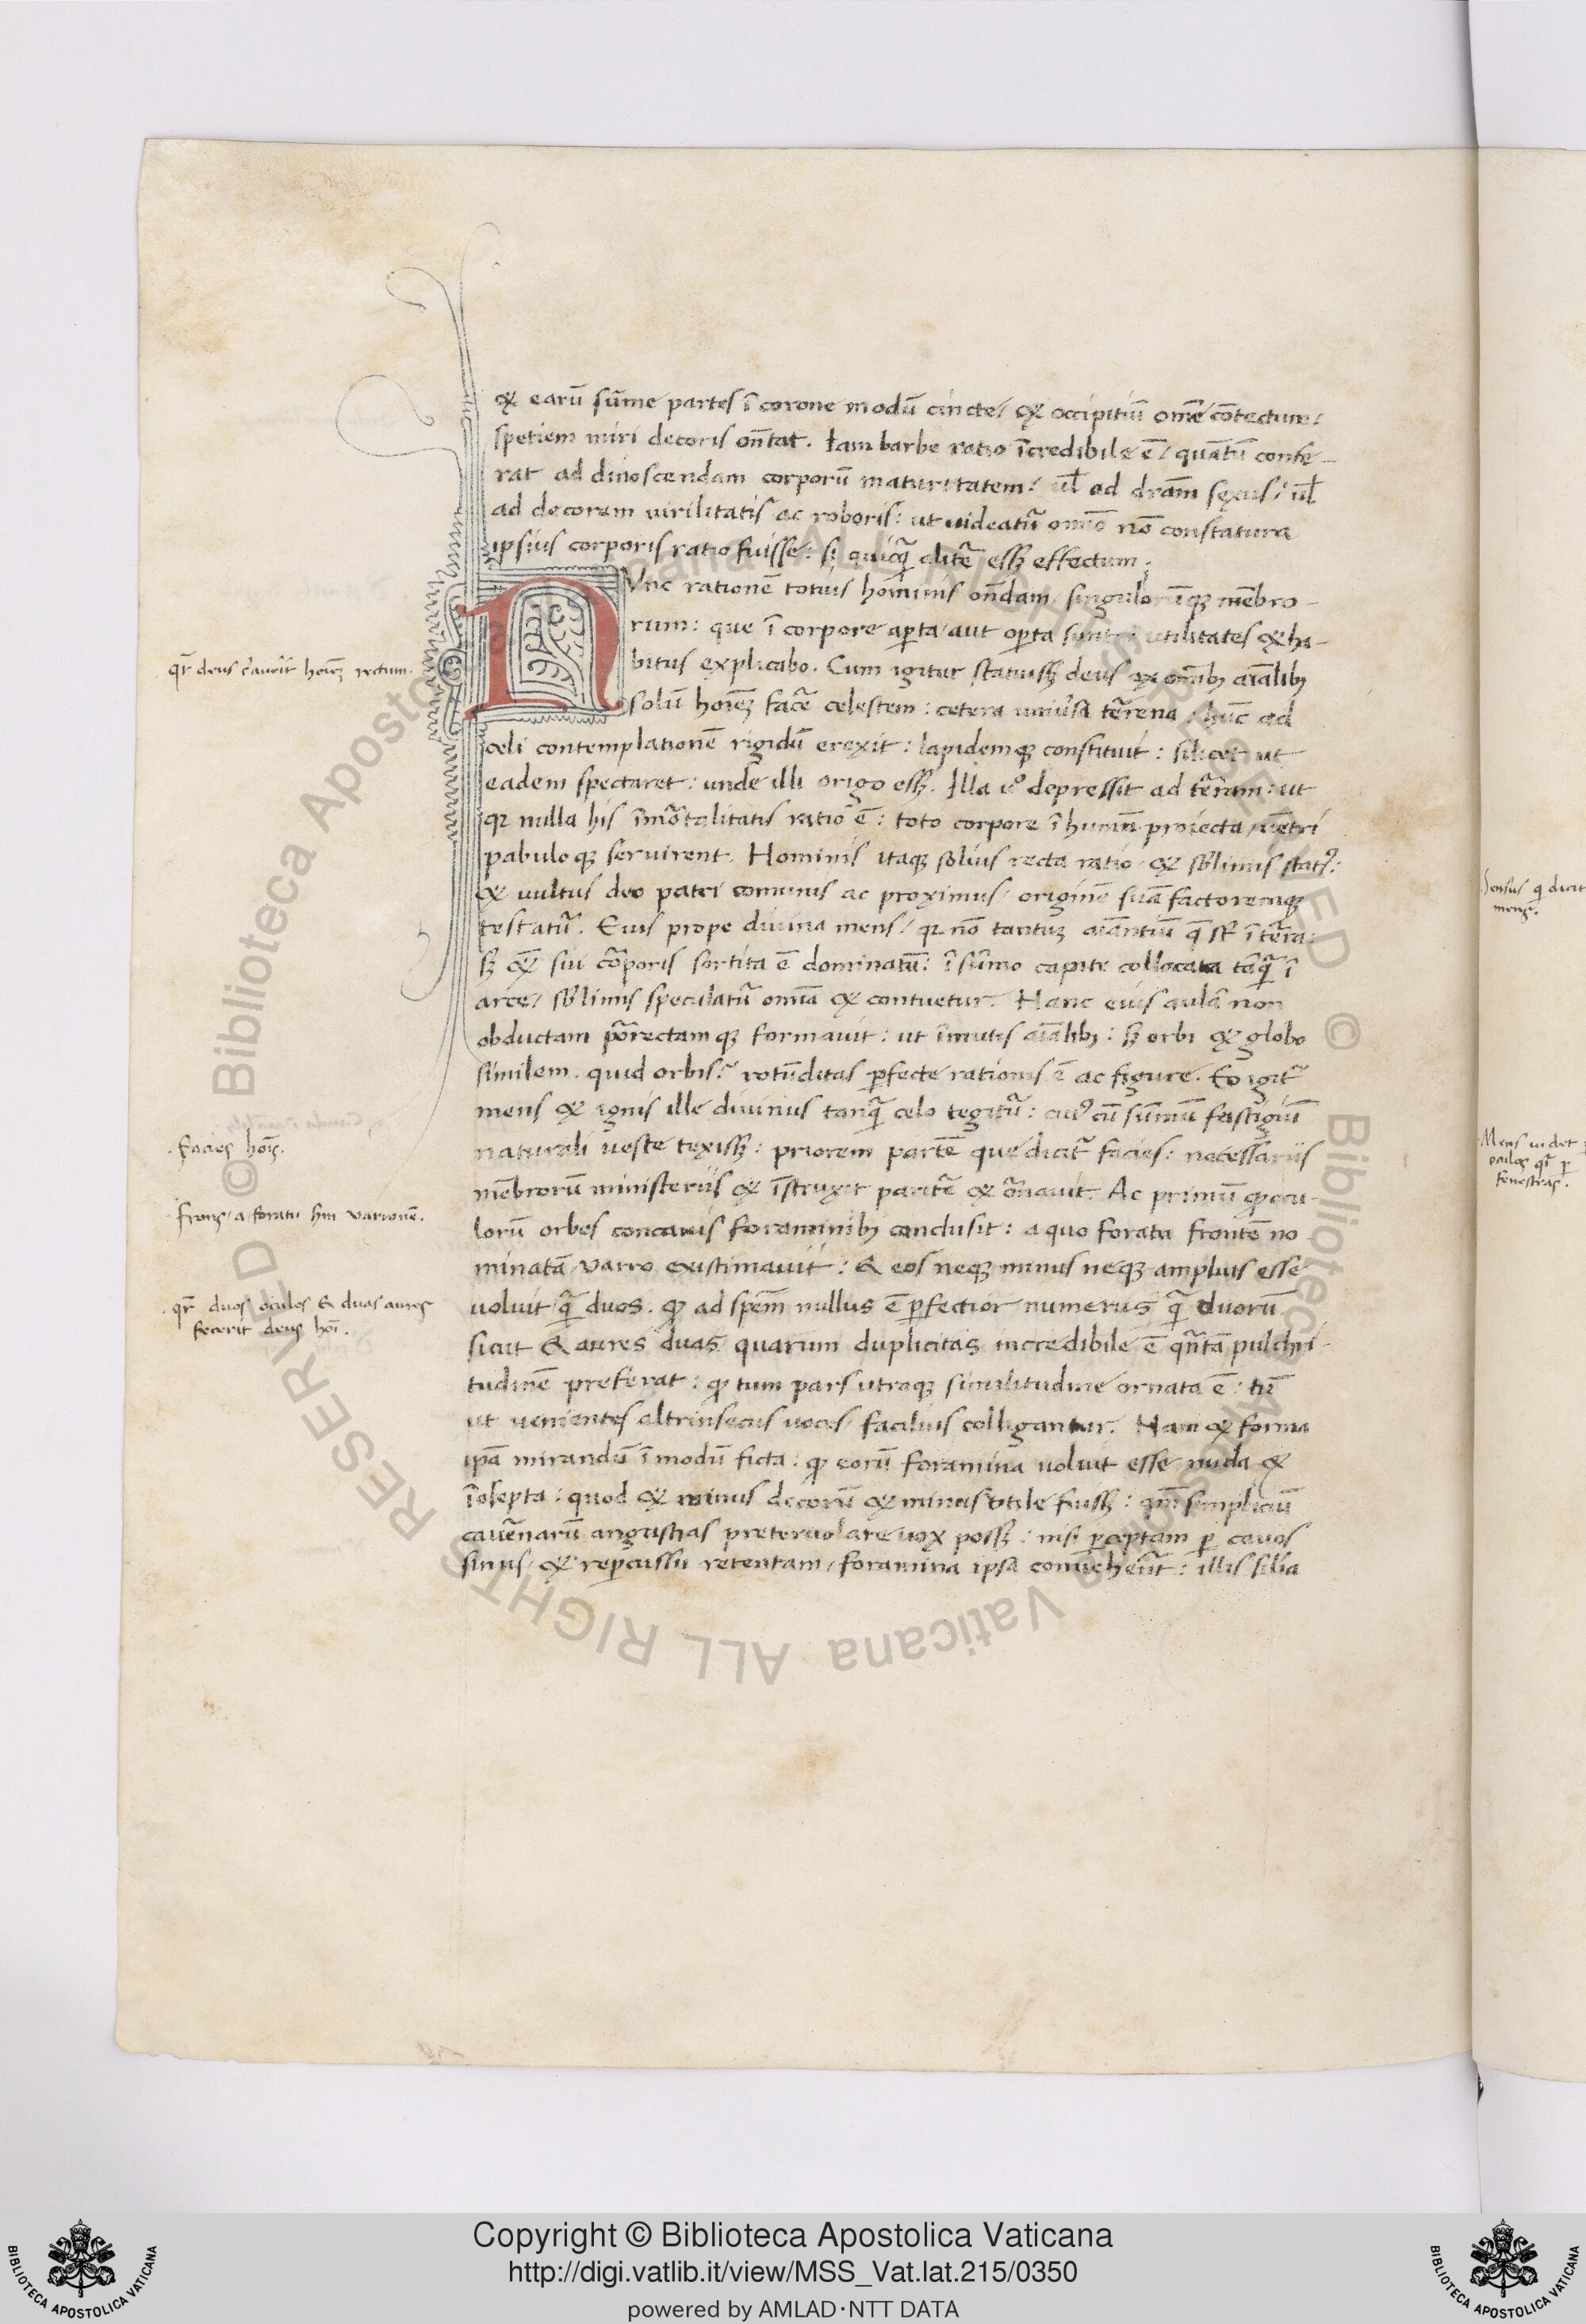 & earū sūme partes ī corone modū cincte / & occipitiū omē cōtectum /
spetiem miri decoris on̄tat. Iam barbe ratio īcredibile ē / quātū confe-
rat ad dinoscendam corporū maturitatem / ul̄ ad dr̄am sexus / ul̄
ad decorem virilitatis ac roboris : ut uideatū omīo nō constatura
ipsius corporis ratio fuisse : si quicq̄ alitē essꝫ effectum ;
NVnc rationē totius hominis on̄dam singulorūqꝫ mēbro-
rum : que ī corpore aꝑta / aut oꝑta sunt : utilitates & ha-
qr̄ deus creauerit hoīeꝫ rectum.
bitus explicabo. Cum igitur statuissꝫ deus ex omībꝫ aīalibꝫ
solū hoīeꝫ facē celestem : cetera uniūsa tērena : hūc ad
celi contemplationē rigidū erexit : lapidemqꝫ constituit : silicet ut
eadem spectaret : unde illi origo essꝫ. Illa ūo depressit ad tēram : ut
qꝛ nulla his īmōtalitatis ratio ē : toto corpore ī humū proiecta / uētri
pabuloqꝫ servirent. Hominis itaqꝫ solius recta ratio & sb̄limis statꝰ :
& uultus deo patri comunis ac proximus / originē suā factoremqꝫ
testatū. Eius prope diuina mens / qꝛ nō tantuꝫ aīantiū q̄ st̄ ī tēra :
sꝫ & sui cōporis sortita ē dominatū : ī sūmo capite collocata tāq̄ ī
arce / sb̄limis speculatū omīa & contuetur. Hanc eius aulā non
obductam porrectamqꝫ formauit : ut ī mutis aīalibꝫ : sꝫ orbi & globo
similem. quid orbis ? rotūditas ꝑfecte rationis ē ac figure. Eo igit̄
mens & ignis ille diuinus tanq̄ celo tegitū : cuiꝰ cū sūmū fastigiū
facies hoīs.
naturali ueste texissꝫ : priorem partē que dicit̄ facies : necessariis
mēbrorū ministeriis & īstruxit paritē & ōnauit. Ac primū qͦ ocu-
frons / a foratu sm̄ varronē.
lorū orbes concauis foraminibꝫ conclusit : a quo forata frontē no-
minatā / varro existimauit : & eos neqꝫ minus neqꝫ amplius esse
qr̄ duos oculos & duas aures
fecerit deus hoī.
uoluit / q̄ duos. qͦ ad spēm nullus ē ꝑfectior numerus q̄ duorū
sicut & aures duas quarum duplicitas incredibile ē qn̄tā pulchri-
tudinē preferat : qͦ tum pars utraqꝫ similitudine ornata ē : tū
ut uenientes altrinsecus uoces / facilius colligantur. Nam & forma
ipā mirandū ī modū ficta : qͦ eorū foramina uoluit esse nuda &
īosepta : quod & minus decorū & minus utile fuissꝫ : qm̄ simpliciū
cauēnarū angustias preteruolare uox possꝫ : nisi ꝑceptam ꝑ cauos
sinus / & reꝑcussu retentam / foramina ipsa comīcherēt : illis sil̄ia
Sensus q̄ dicit
mens.
Mens uidet
fenestras.
Copyright © Biblioteca Apostolica Vaticana
http://digi.vatlib.it/view/MSS_Vat.lat.215/0350
powered by AMLAD·NTT DATA
BIBLIOTECA APOSTOLICA VATICANA
BIBLIOTECA APOSTOLICA VATICANA